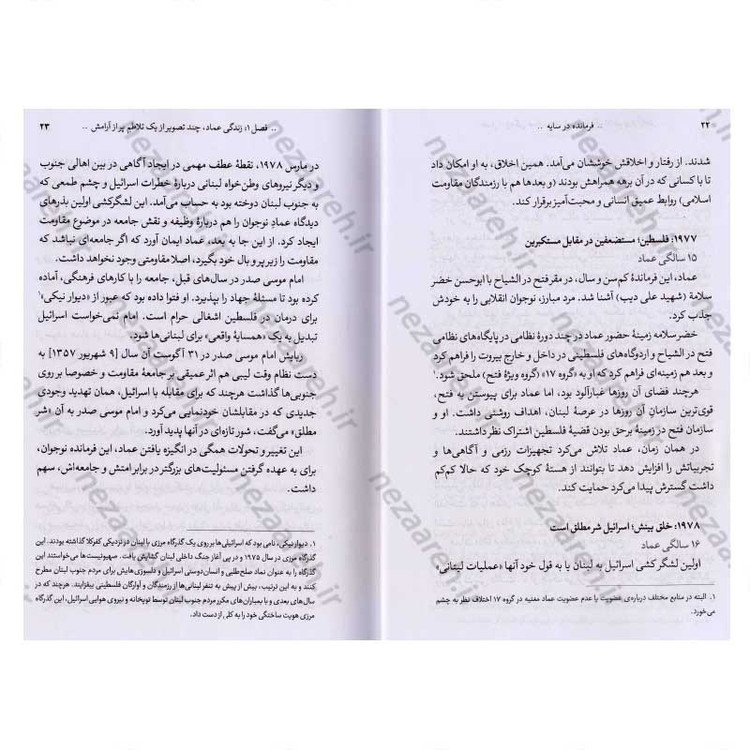 ۲۲ .. فرمانده در سایه ..
شدند. از رفتار و اخلاقش خوششان می‌آمد. همین اخلاق، به او امکان داد
تا با کسانی که در آن برهه همراهش بودند (و بعدها هم با رزمندگان مقاومت
اسلامی) روابط عمیق انسانی و محبت‌آمیز برقرار کند.
۱۹۷۷: فلسطین؛ مستضعفین در مقابل مستکبرین
۱۵ سالگی عماد
عماد، این فرماندۀ کم‌سن و سال، در مقر فتح در الشیاح با ابوحسن خضر
سلامة (شهید علی دیب) آشنا شد. مرد مبارز، نوجوان انقلابی را به خودش
جذب کرد.
خضر سلامه زمینۀ حضور عماد در چند دورۀ نظامی در پایگاه‌های نظامی
فتح در الشیاح و اردوگاه‌های فلسطینی در داخل و خارج بیروت را فراهم کرد
و بعد هم زمینه‌ای فراهم کرد که او به «گروه ۱۷» (گروه ویژۀ فتح) ملحق شود.۱
هرچند فضای آن روزها غبارآلود بود، اما عماد برای پیوستن به فتح،
قوی‌ترین سازمانِ آن روزها در عرصۀ لبنان، اهداف روشنی داشت. او و
سازمان فتح در زمینۀ برحق بودن قضیۀ فلسطین اشتراک نظر داشتند.
در همان زمان، عماد تلاش می‌کرد تجهیزات رزمی و آگاهی‌ها و
تجربیاتش را افزایش دهد تا بتوانند از هستۀ کوچک خود که حالا کم‌کم
داشت گسترش پیدا می‌کرد حمایت کند.
۱۹۷۸: خلق بینش؛ اسرائیل شر مطلق است
۱۶ سالگی عماد
اولین لشگرکشی اسرائیل به لبنان یا به قول خود آنها «عملیات لیتانی»
۱. البته در منابع مختلف درباره‌ی عضویت یا عدم عضویت عماد مغنیه در گروه ۱۷ اختلاف نظر به چشم
می‌خورد.
.. فصل ۱: زندگی عماد، چند تصویر از یک تلاطم پر از آرامش .. ۲۳
در مارس ۱۹۷۸، نقطۀ عطف مهمی در ایجاد آگاهی در بین اهالی جنوب
و دیگر نیروهای وطن‌خواه لبنانی دربارۀ خطرات اسرائیل و چشم طمعی که
به جنوب لبنان دوخته بود به حساب می‌آمد. این لشگرکشی اولین بذرهای
دیدگاه عمادِ نوجوان را هم دربارۀ وظیفه و نقش جامعه در موضوع مقاومت
ایجاد کرد. از این جا به بعد، عماد ایمان آورد که اگر جامعه‌ای نباشد که
مقاومت را زیر پر و بال خود بگیرد، اصلا مقاومتی وجود نخواهد داشت.
امام موسی صدر در سال‌های قبل، جامعه را با کارهای فرهنگی، آماده
کرده بود تا مسئلۀ جهاد را بپذیرد. او فتوا داده بود که عبور از «دیوار نیکی»۱
برای درمان در فلسطین اشغالی حرام است. امام نمی‌خواست اسرائیل
تبدیل به یک «همسایۀ واقعی» برای لبنانی‌ها شود.
ربایش امام موسی صدر در ۳۱ آگوست آن سال [۹ شهریور ۱۳۵۷] به
دست نظام وقت لیبی هم اثر عمیقی بر جامعۀ مقاومت و خصوصا بر روی
جنوبی‌ها گذاشت هرچند که برای مقابله با اسرائیل، همان تهدید وجودی
جدیدی که در مقابلشان خودنمایی می‌کرد و امام موسی صدر به آن «شر
مطلق» می‌گفت، شور تازه‌ای در آنها پدید آورد.
این تغییر و تحولات همگی در انگیزه یافتن عماد، این فرمانده نوجوان،
برای به عهده گرفتن مسئولیت‌های بزرگتر در برابر امتش و جامعه‌اش، سهم
داشت.
۱. دیوار نیکی، نامی بود که اسرائیلی‌ها بر روی یک گذرگاه مرزی با لبنان در نزدیکی کفرکلا گذاشته بودند. این
گذرگاه مرزی در سال ۱۹۷۵ و در پی آغاز جنگ داخلی لبنان گشایش یافت. صهیونیست‌ها می‌خواستند این
گذرگاه را به عنوان نماد صلح‌طلبی و انسان‌دوستی اسرائیل و دلسوزی‌هایش برای مردم جنوب لبنان مطرح
کنند و به این ترتیب، بیش از پیش به تنفر لبنانی‌ها از رزمندگان و آوارگان فلسطینی بیفزایند. هر چند که در
سال‌های بعدی و با بمباران‌های مکرر مردم جنوب لبنان توسط توپخانه و نیروی هوایی اسرائیل، این گذرگاه
مرزی هویت ساختگی خود را به کلی از دست داد.
nezaareh.ir